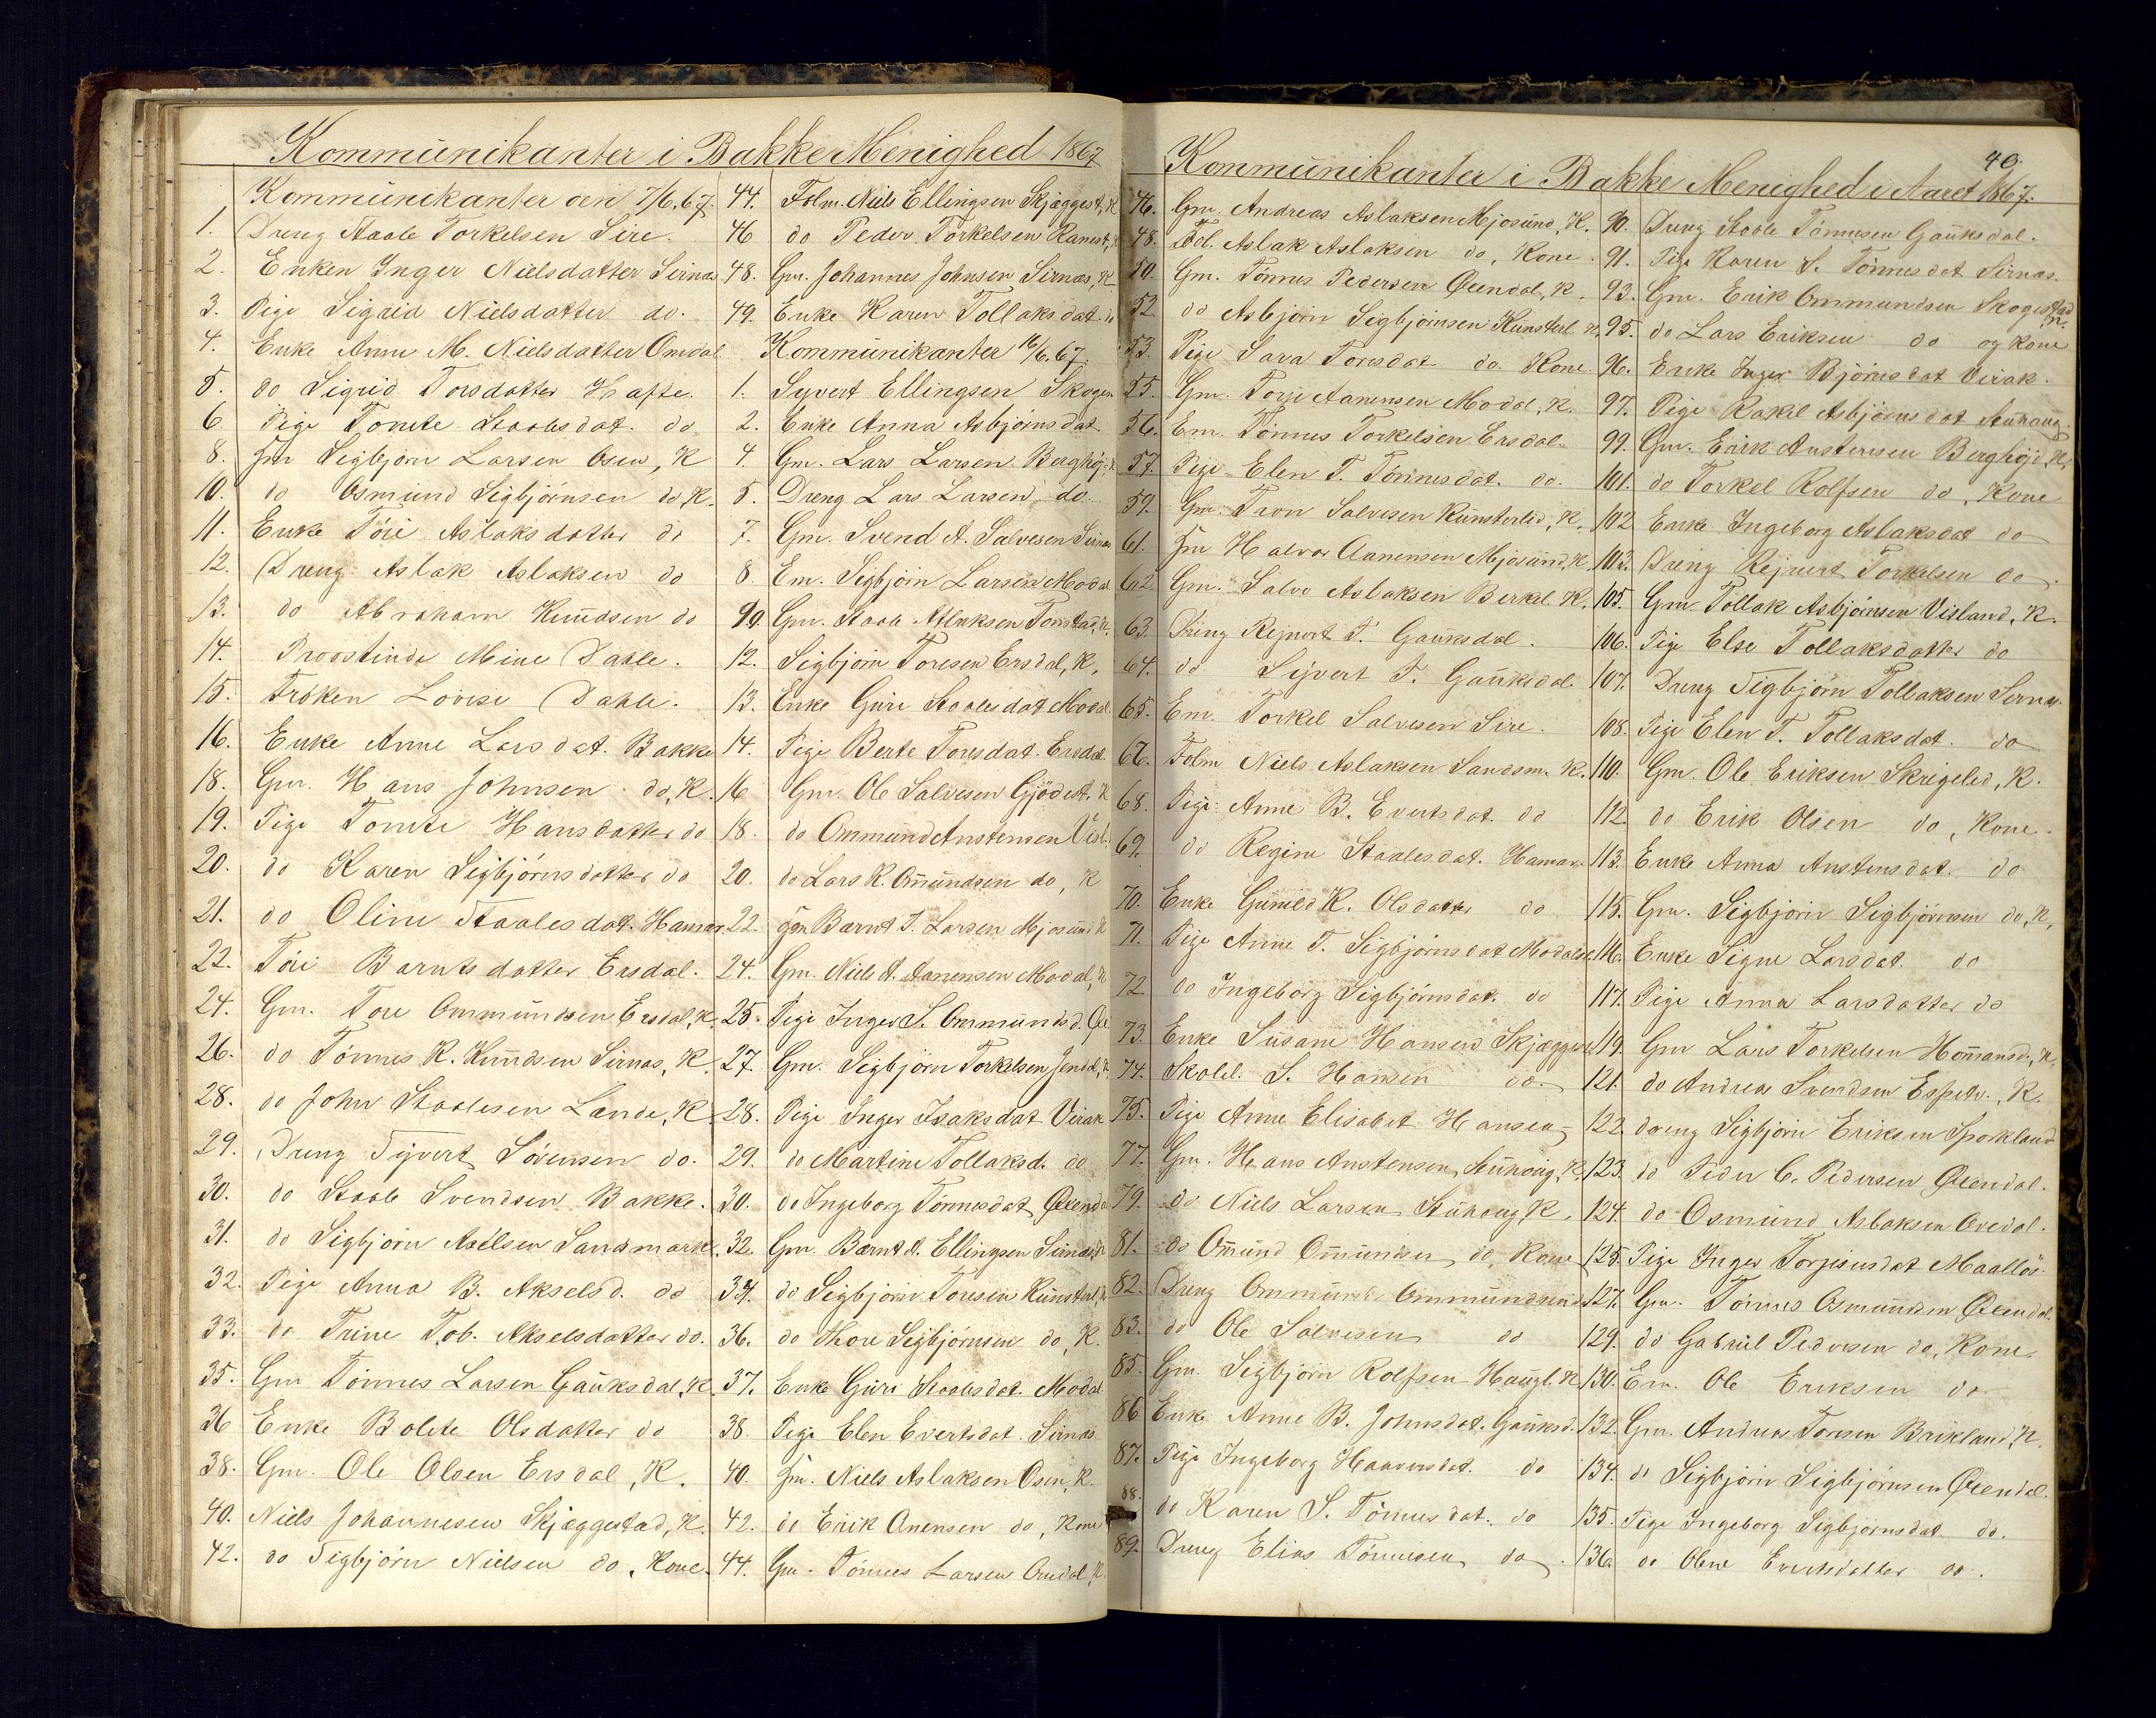 Kommunikanter i Bakke Menighed 1867
Kommunikanter den 7/6.67.
1. Dreng Staale Torkelsen Sire.
2. Enken Inger Nielsdatter Sirnas
3. Pige Sigrid Nielsdatter do.
4. Enke Anne M. Nielsdatter Omdal
5. do Sigrid Torsdatter Hafte.
6. Pige Tomte Staalesdat. do
8. Gm Sigbjörn Larsen Osen, K
10. do Osmund Sigbjörnsen do K.
11. Enke Töri Aslaksdatter do
12. Dreng Aslak Aslaksen do
13. do Abraham Knudsen do
14. Provstinde Mine Dahle.
15. Fröken Lovise Dahle.
16. Enke Anne Larsdat. Bakke
18. Gm. Hans Johnsen do, K.
19. Pige Tomte Hansdatter do
20. do Karen Sigbjörnsdatter do
21. do Oline Staalesdat. Hamar
22. Töri Barntsdatter Ersdal.
24. Gm. Tore Ommundsen Ersdal, K.
26. do Tönnes K. Knudsen Sirnas, K.
28. do John Staalesen Lande, K
29. Dreng Sijvert Sörensen do.
30. do Staale Svendsen Bakke.
31. do Sigbjörn Axelsen Sandmark.
32. Pige Anna B. Akselsd. do
33. do Trine Tob. Akselsdatter do.
35. Gm Tönnes Larsen Gauksdal, K.
36 Enke Bolete Olsdatter do
38. Gm. Ole Olsen Ersdal, K.
40. Niels Johannesen Skjæggestad, K.
42. do Sigbjörn Nielsen do, Kone.
44. Folm. Niels Ellingsen Skjæggest, K
46 do Peder Torkelsen Ranest, K
48. Gm. Johannes Johnsen Sirnas, K
49. Enke Karen Tollaksdat. do
Kommunikanter 16/6.67.
1. Syvert Ellingsen Skogen
2. Enke Anna Asbjörnsdat.
4. Gm. Lars Larsen Berghöj,
5. Dreng Lars Larsen do.
7. Gm. Svend A. Salvesen Sirnas
8. Em. Sigbjörn Larsen Modal
10. Gm. Staale Atlaksen Tonstad, K.
12. Sigbjörn Toresen Ersdal, K,
13. Enke Guri Staalesdat Modal.
14. Pige Berte Toresdat. Ersdal
16 Gm Ole Salvesen Gjödest. K
18. do Ommund Austensen Visl.
20. do Lars K. Omundsen do, K
22. Gm Barnt T. Larsen Mjosund K
24. Gm. Niels A. Aanensen Modal, K
25. Pige Inger S. Ommundsd.
27. Gm. Sigbjörn Torkelsen
28. Pige Inger Isaksdat Virak
29. do Martine Tollaksd. do
30. do Ingeborg Tönnesdat Qvenda
32. Gm. Barnt A. Ellingsen Sirnas
34. do Sigbjörn Toresen Kunsterl, K
36. do Thore Sigbjörnsen do, K.
37. Enke Guri Staalesdat. Modal
38. Pige Elen Evertsdat. Sirnas
40. Gm. Niels Aslaksen Osen, K.
42. do Erik Anensen do, Kone
44. Gm. Tönnes Larsen Omdal, K.
40.
Kommunikanter i Bakke Menighed i Aaret 1867.
46. Gm. Andreas Aslaksen Mjosund, K.
48. Aslak Aslaksen do, Kone.
50. Gm. Tönnes Pedersen Qvendal, K.
52. do Asbjörn Sigbjörnsen Kunsterl. K
53. Pige Sara Toresdat do. Kone
55. Gm. Torje Aanensen Modal, K.
56. Em. Tönnes Torkelsen Ersdal.
57. Pige Elen T. Tönnesdat. do.
59. Gm. Tron Salvesen Kunsterlid, K,
61. Gm Halvor Aanensen Mjosund, K.
62. Gm. Salve Aslaksen Berkel. K.
63. Dreng Rejnert T. Gauksdal.
64. do Sijvert T. Gauksdal.
65. Em. Torkel Salvesen Sire.
67. Folm Niels Aslaksen Sandsm. K.
68. Pige Anne B. Evertsdat. do
69. do Regine Staalesdat. Hamar
70. Enke Gunild K. Olsdatter do
71. Pige Anne T. Sigbjörnsdat Modal
72. do Ingeborg Sigbjörnsdat. do
73. Enke Susane Hansen Skjæggest
74. Skolel. S. Hansen do.
75. Pige Anne Elisabet Hansen
77. Gm. Hans Austensen Stuhoug, K.
79. do Niels Larsen Stuhoug K.
81. do Omund Omundsen do, Kone
82. Dreng Ommund Ommundsen do
83. do Ole Salvesen do
85. Gm. Sigbjörn Rolfsen Haugl. K
86 Enke Anne B. Johnsdat. Gauksd.
87. Pige Ingeborg Haaversdat. do
88. do Karen S. Tönnesdat. do
89. Dreng Elias Tönnesen do.
90. Dreng Staale Tönnesen Gauksdal.
91. Pige Karen S. Tönnesdat Sirnas.
93. Gm. Erik Ommundsen Skogestad K.
95. do Lars Eriksen do og kone
96. Enke Inger Björnsdat Virak.
97. Pige Rakel Asbjörnsdat Stuhaug.
99. Gm. Erik Austensen Berghöjd, K,
101. do Torkel Rolfsen do, Kone
102 Enke Ingeborg Aslaksdat do
103. Dreng Rejnert Torkelsen do.
105. Gm Tollak Asbjörnsen Visland, K.
106. Pige Else Tollaksdatter do
107. Dreng Sigbjörn Tollaksen Sirnas.
108. Pige Elen T. Tollaksdat. do
110. Gm. Ole Eriksen Skrigeled, K.
112. do Erik Olsen do, Kone.
113. Enke Anna Austensdat. do
115. Gm. Sigbjörn Sigbjörnsen do, K,
116. Enke Signe Larsdat. do
117. Pige Anna Larsdatter do
119. Gm Lars Torkelsen Homansd., K,
121. do Andreas Svendsen Espetv., K.
122. dreng Sigbjörn Eriksen Sporkland
123. do Peder C. Pedersen Qvendal.
124. do Osmund Aslaksen Ovedal.
125. Pige Inger Torjesensdat Maallös
127. Gm. Tönnes Osmundsen Qvendal.
129. do Gabriel Pedersen do, Kone.
130. Em. Ole Eriksen do
132. Gm. Andreas Toresen Birkland, K.
134. do Sigbjörn Sigbjörnsen Qvendal.
135. Pige Ingeborg Sigbjörnsdat do.
136. do Olene Evertsdatter do.